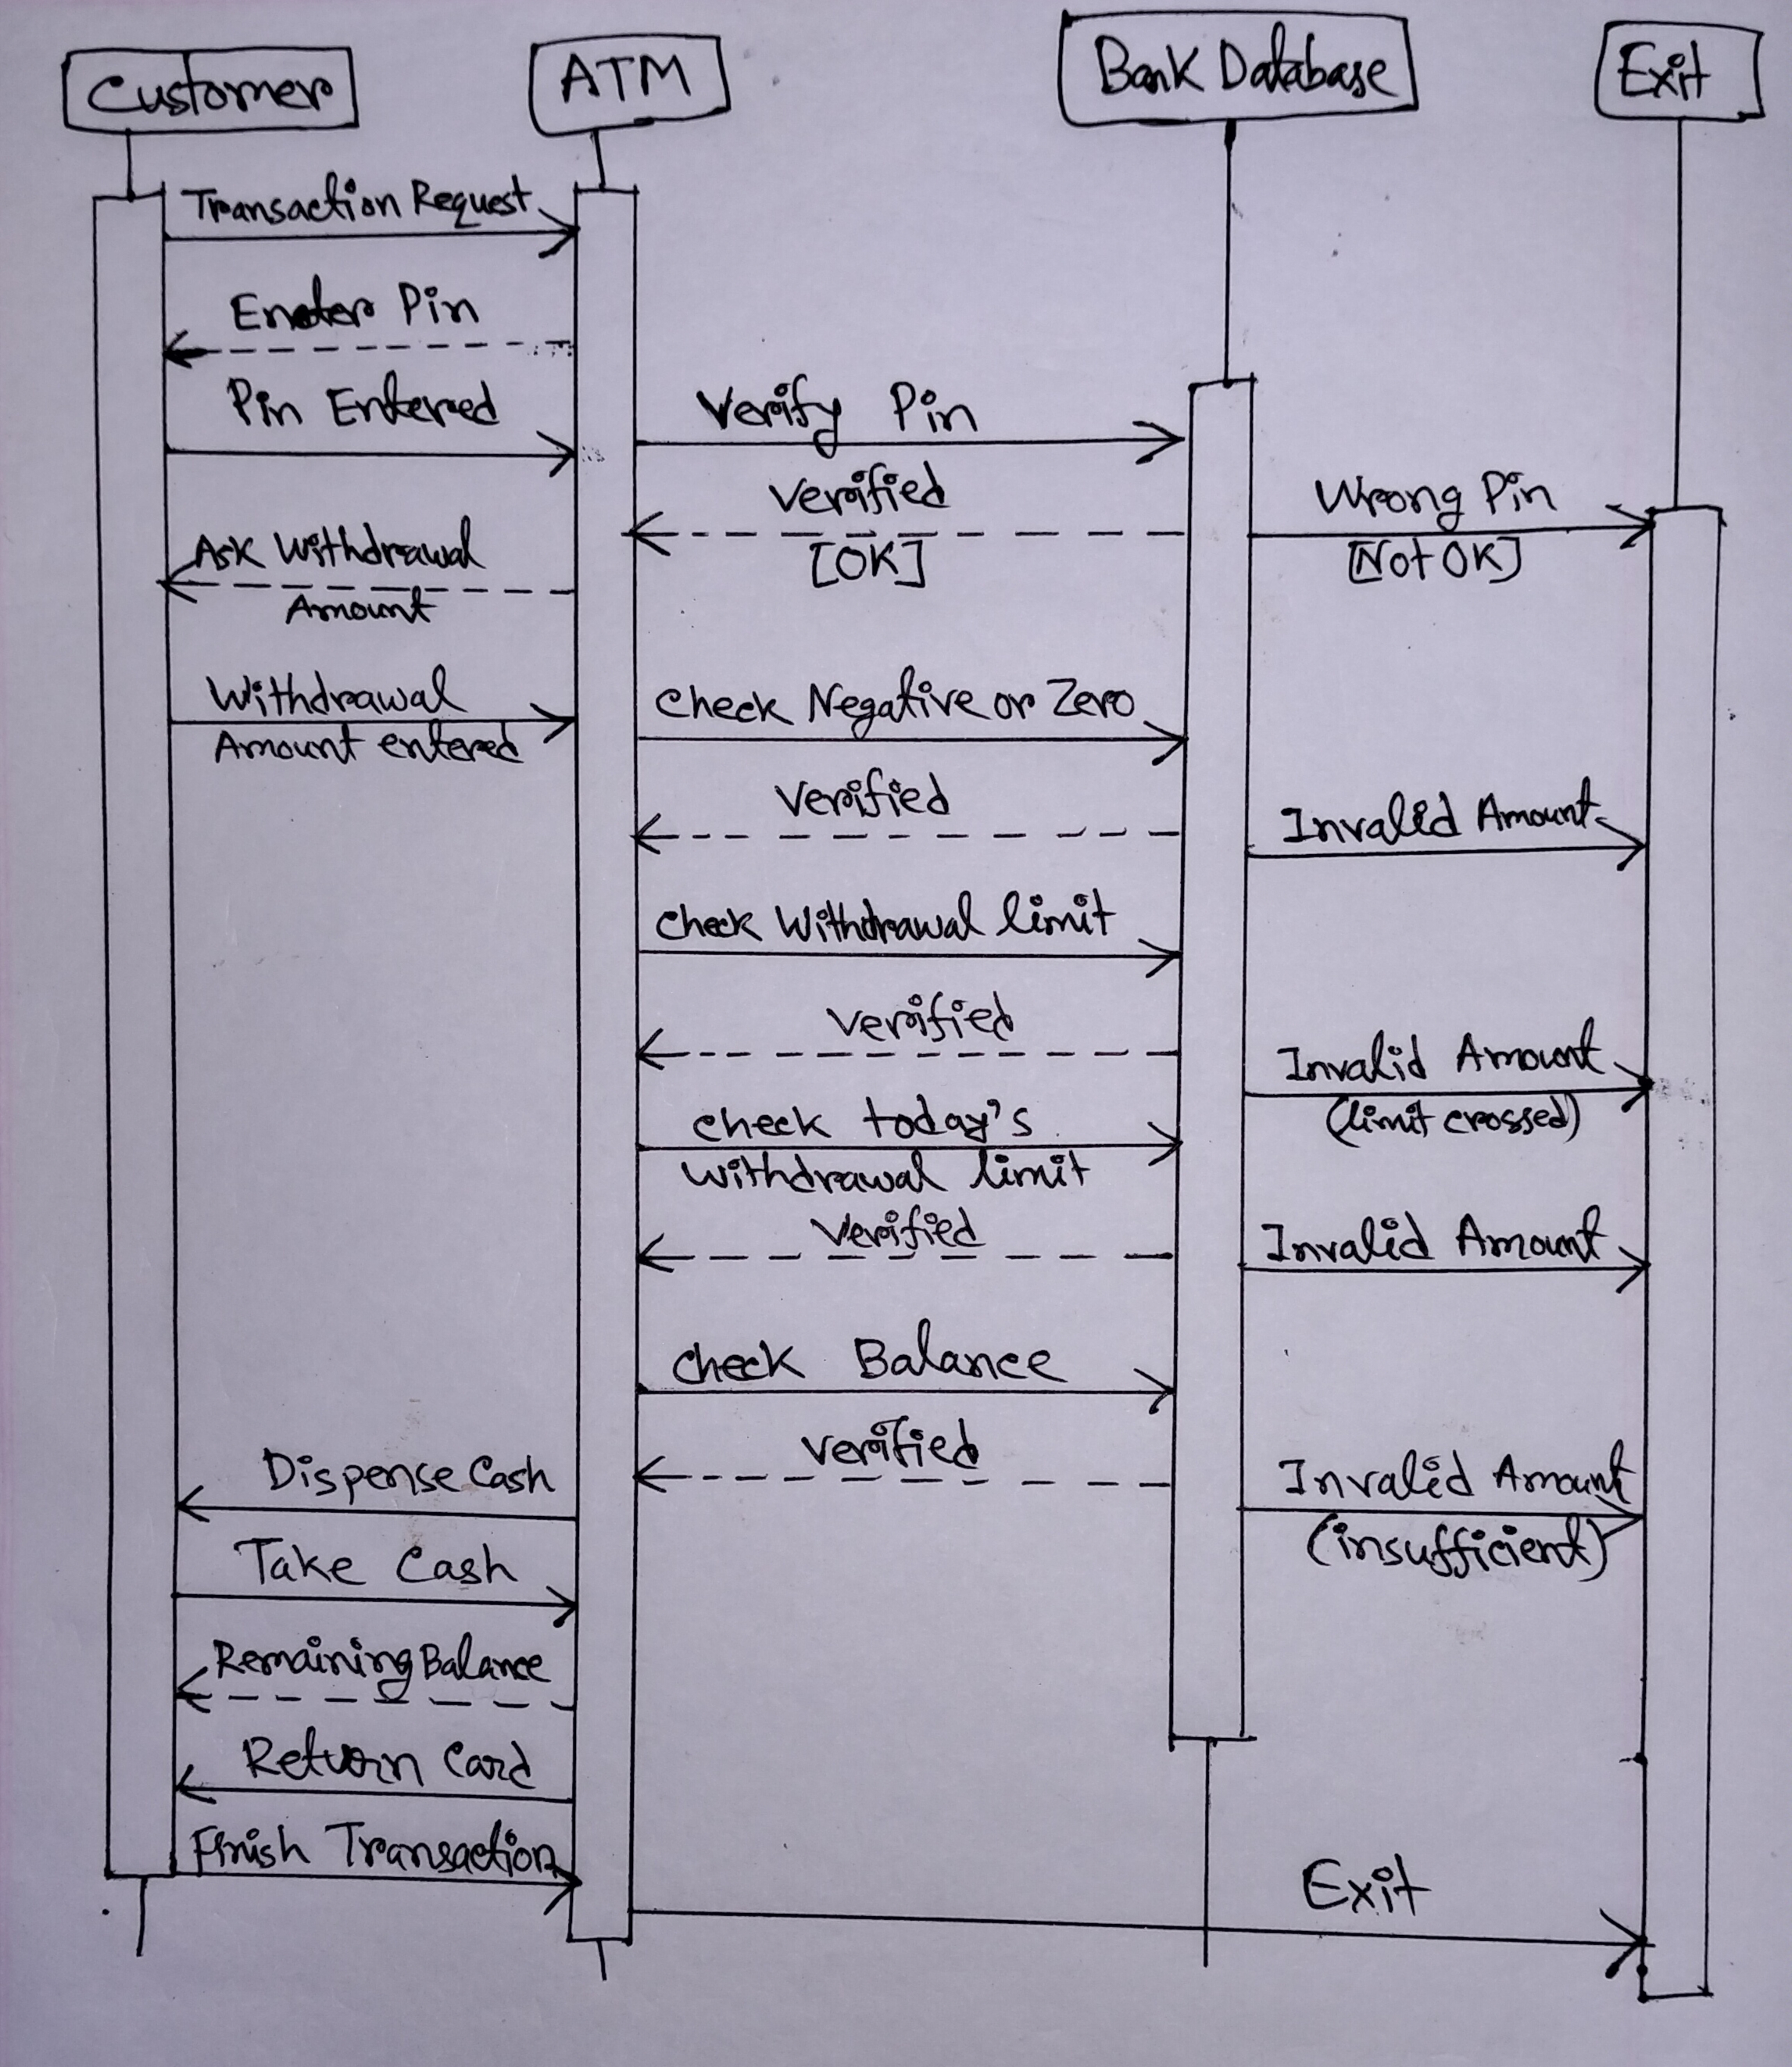 Customer
ATM
Bank Database
Exit
Transaction Request
Eneter Pin
Pin Entered
Verify Pin
Verified
[OK]
Wrong Pin
[Not OK]
Ask Withdrawal
Amount
Withdrawal
Amount entered
Check Negative or Zero
Verified
Invalid Amount
Check Withdrawal limit
Verified
Invalid Amount
(limit crossed)
Check today's
withdrawal limit
Verified
Invalid Amount
Check Balance
Verified
Invalid Amount
(insufficient)
Dispense Cash
Take Cash
Remaining Balance
Return Card
Finish Transaction
Exit